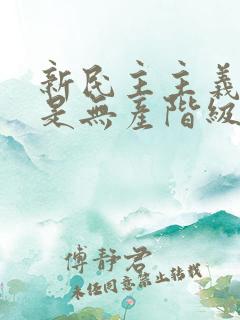 新民主主義
是無產階級
傅静君
未经同意禁止转载